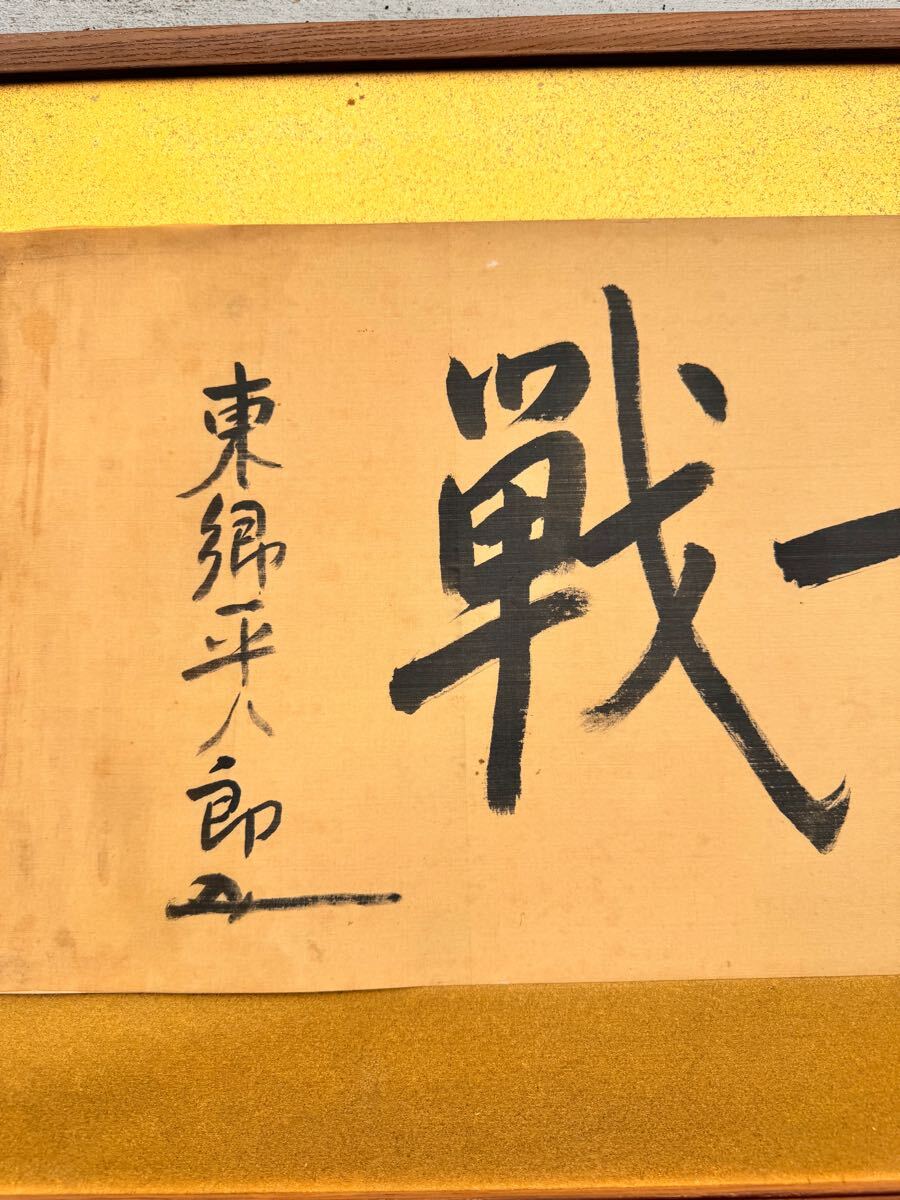 一戰
東郷平八郎